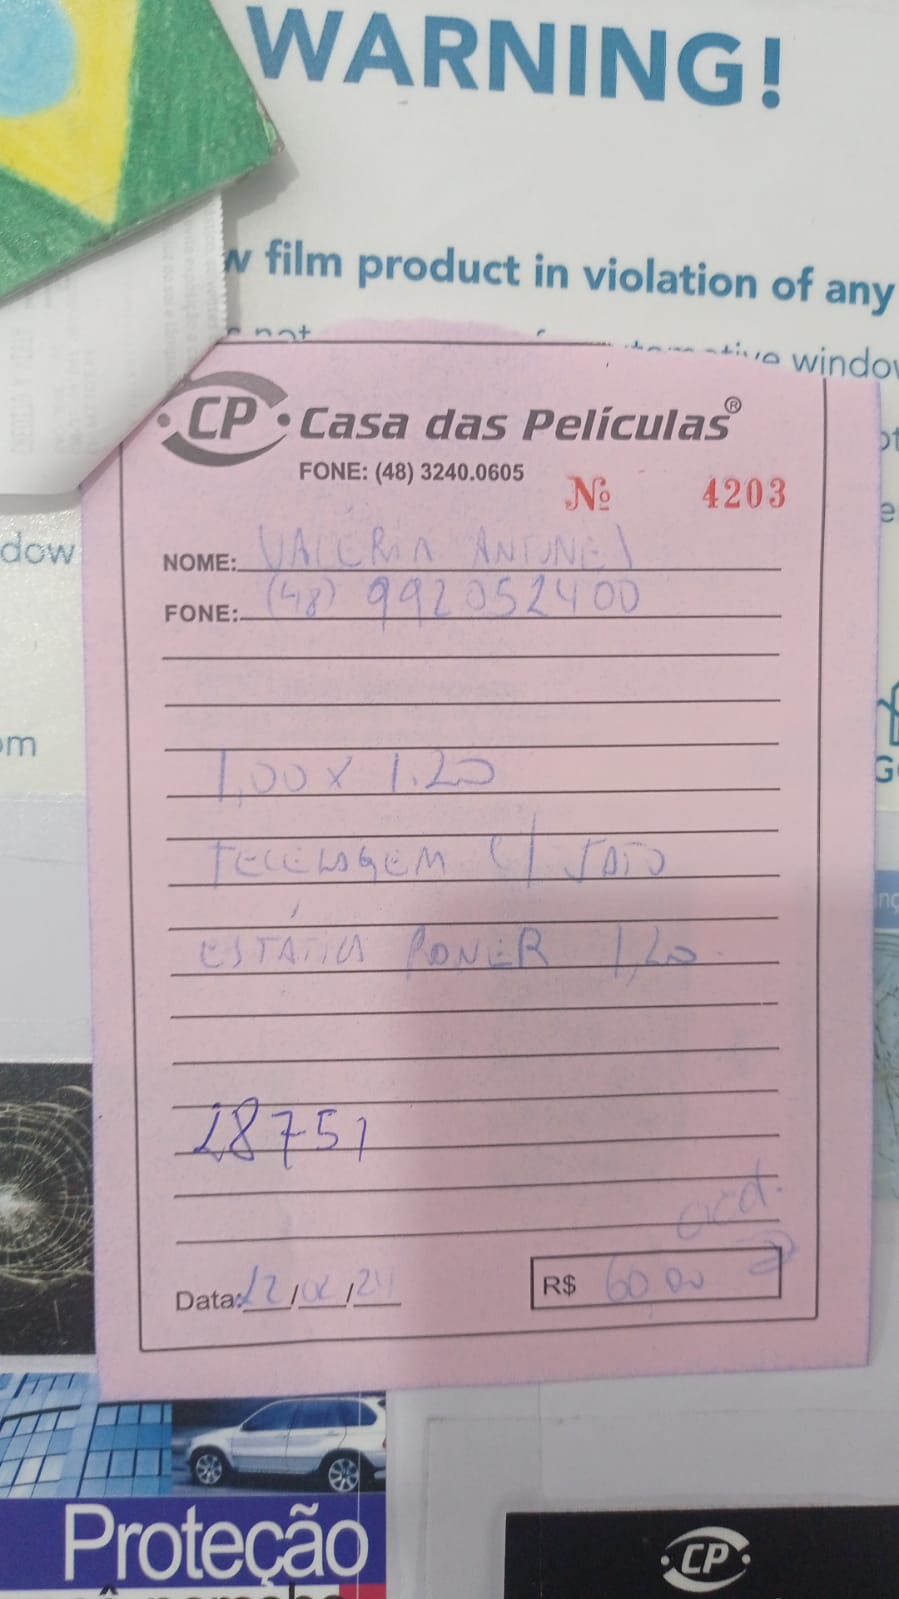 WARNING!
w film product in violation of any
window
dow
om
CP Casa das Películas®
FONE: (48) 3240.0605
Nº 4203
NOME: VALERIA ANTUNES
FONE: (48) 992052400
1,00 x 1.20
C/ JATO
ESTÁTICA POWER 1,20
28751
Data: /02/24
R$ 60,00
Proteção
CP